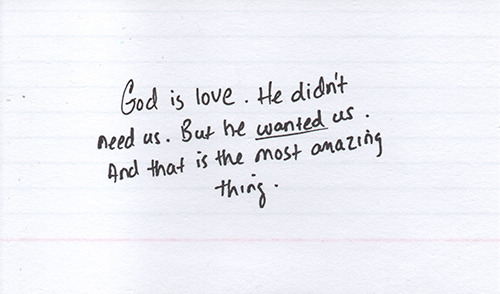 God is love. He didn't
need us. But he wanted us.
And that is the most amazing
thing.